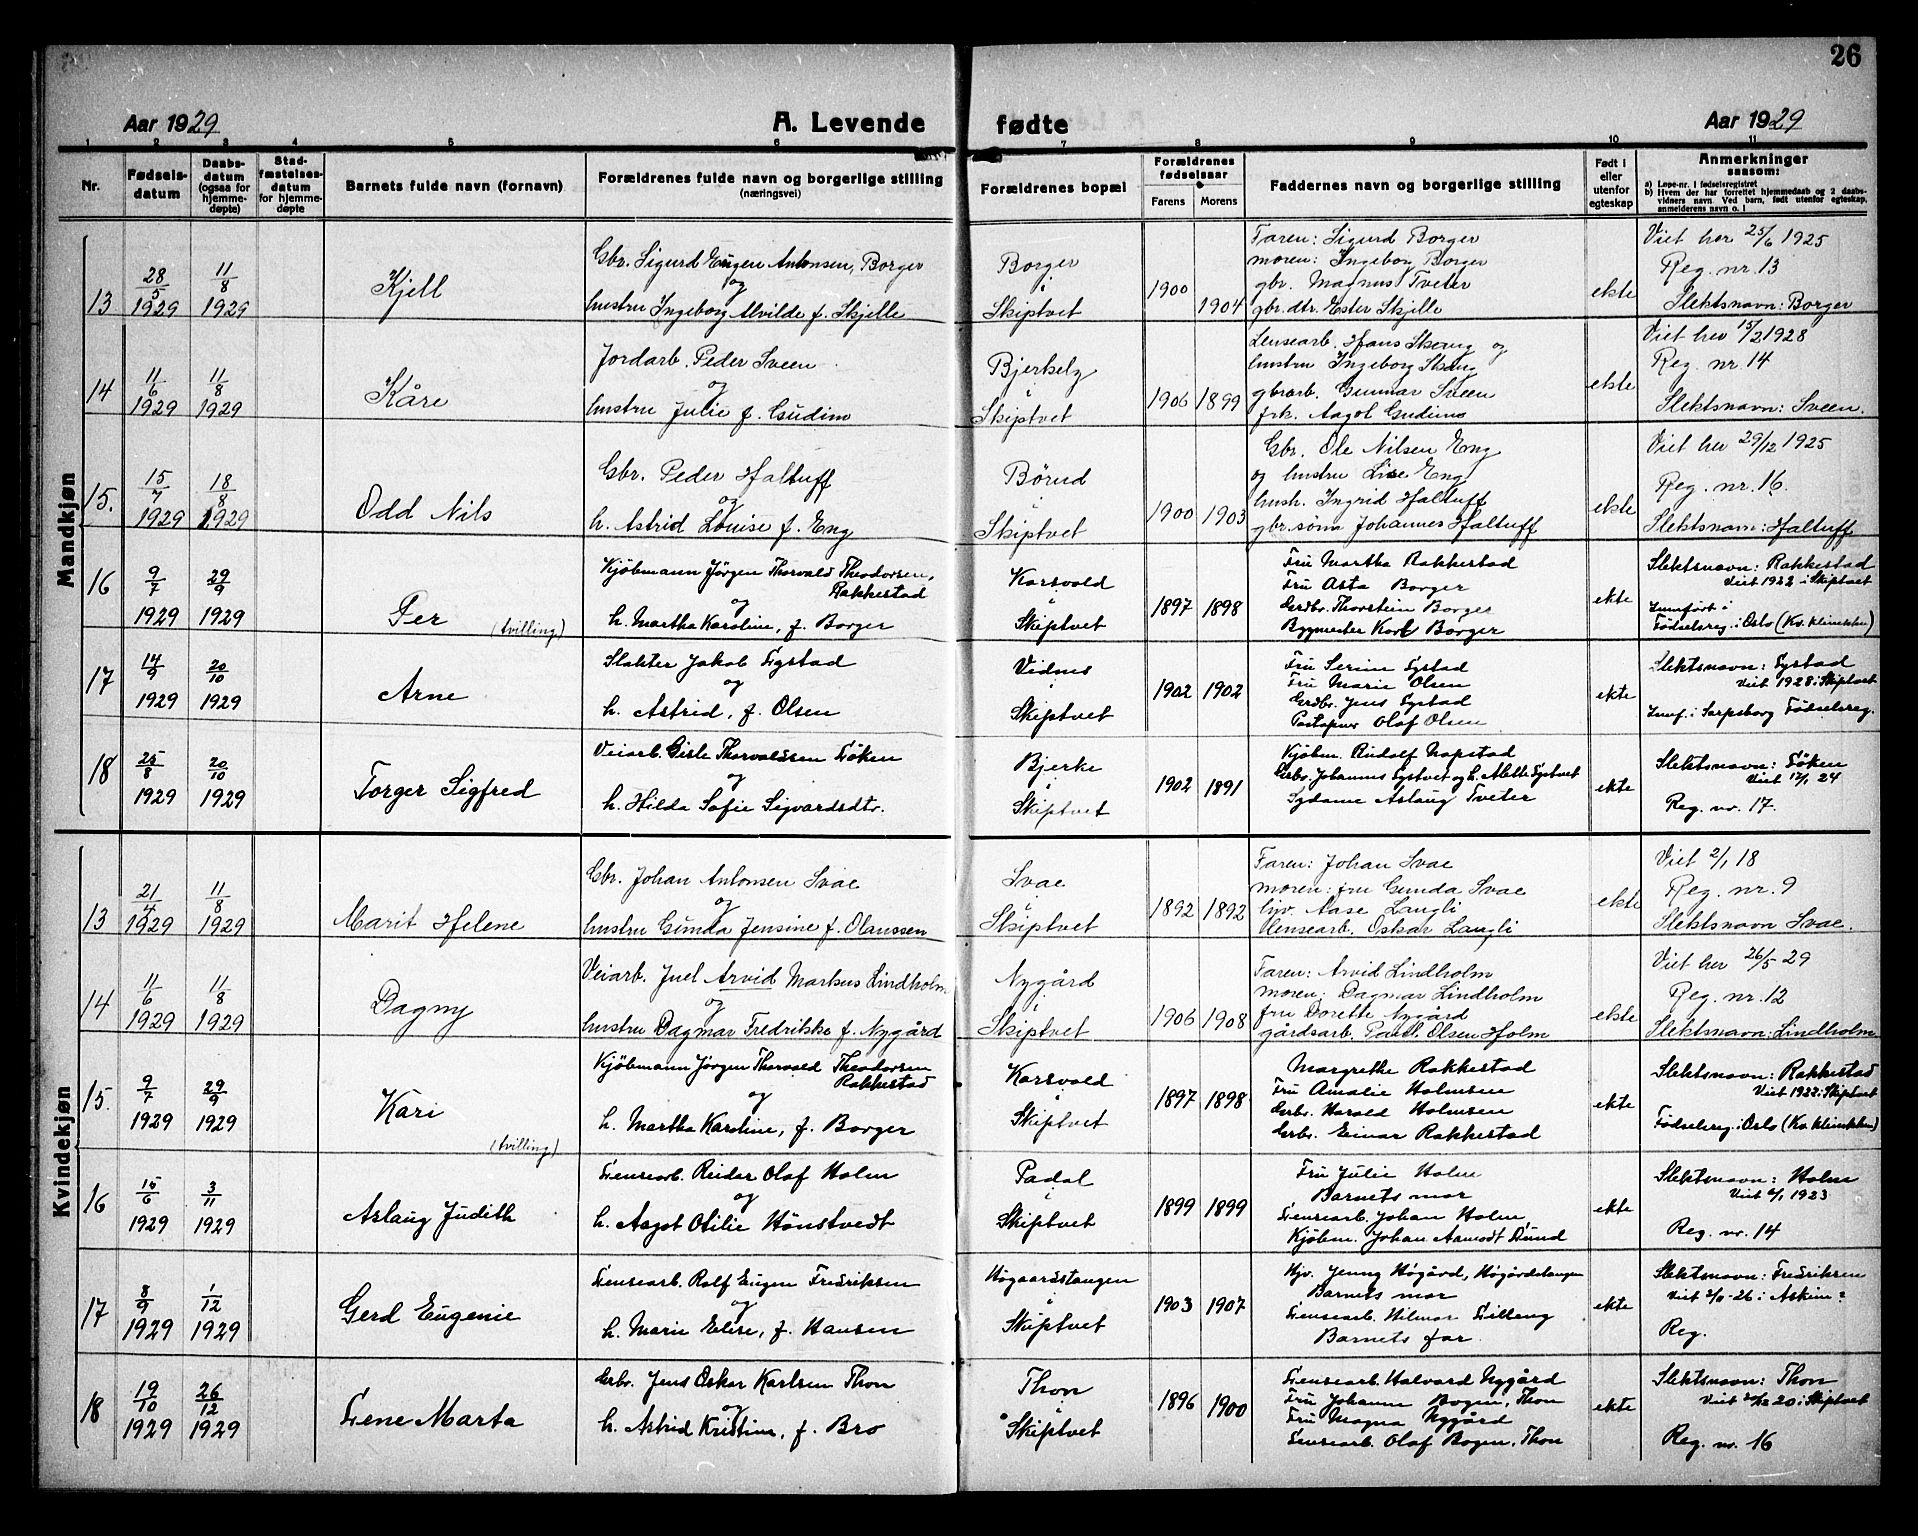 26
Aar 1929
A. Levende
fødte
Aar 1929
1 2 3 4 5 6 7 8 9 10 11
Nr.
Fødsels-
datum
Daabs-
datum
(ogsaa for
hjemme-
døpte)
Stad-
fæstelses-
datum
for hjemme-
døpte
Barnets fulde navn (fornavn)
Forældrenes fulde navn og borgerlige stilling
(næringsvei)
Forældrenes bopæl
Forældrenes
fødselsaar
Farens Morens
Faddernes navn og borgerlige stilling
Født i
eller
utenfor
egteskap
Anmerkninger
saasom:
a) Løpe-nr. i fødselsregistret
b) Hvem der har forrettet hjemmedaab og 2 daabs-
vidners navn. Ved barn, født utenfor egteskap,
anmelderens navn o. l
Mandkjøn
13
28/5 1929
11/8 1929
Kjell
Gbr. Sigurd Eugen Antonsen, Borger
og
hustru Ingeborg Alvilde f. Skjelle
Borger
i
Skiptvet
1900 1904
Faren: Sigurd Borger
moren: Ingeborg Borger
gbr. Magnus Tveter
gbr. dtr. Ester Skjelle
ekte
Viet her 25/6 1925
Reg. nr. 13
Slektsnavn: Borger
14
11/6 1929
11/8 1929
Kåre
Jordarb. Peder Sveen
og
hustru Julie f. Gudim
Bjerkely
i
Skiptvet
1906 1899
Lensearb. Hans Skaug og
hustru Ingeborg Skaug
gbrarb. Gunnar Sveen
frk. Aagot Gudim
ekte
Viet her 15/2 1928
Reg. nr. 14
Slektsnavn: Sveen.
15.
15/7 1929
18/8 1929
Odd Nils
Gbr. Peder Haltuff
og
h. Astrid Louise f. Eng
Børud
i
Skiptvet
1900 1903
Gbr. Ole Nilsen Eng
og hustru Lise Eng
hush. Ingrid Haltuff
gbr. sønn Johannes Haltuff
ekte
Viet her 29/12 1925
Reg. nr. 16.
Slektsnavn: Haltuff
16
9/7 1929
29/9 1929
Per
(tvilling)
Kjöbmann Jörgen Thorvald Theodorsen,
Rakkestad
og
h. Martha Karoline, f. Borger
Karsvold
i
Skiptvet
1897 1898
Fru Martha Rakkestad
Fru Asta Borger
Grdbr. Thorstein Borger
Bygmester Karl Borger
ekte
Slektsnavn: Rakkestad
Viet 1922 i Skiptvet
Innfört i
Födselsreg. i Oslo (Kv. klinikken)
17
14/9 1929
20/10 1929
Arne
Slakter Jakob Tystad
og
h. Astrid, f. Olsen
Vidnes
i
Skiptvet
1902 1902
Fru Serine Tystad
Fru Marie Olsen
Grdbr. Jens Tystad
Olaf Olsen
ekte
Slektsnavn: Tystad
Viet 1928 i Skiptvet
Innf. i Sarpsborg Födselsreg.
18
25/8 1929
20/10 1929
Torger Sigfred
Veiarb. Gisle Thorvaldsen Föken
og
h. Hilda Sofie Sigvardsdtr.
Bjerke
i
Skiptvet
1902 1891
Kjöbm. Rudolf Napstad
Grbr. Johannes Tystvet og h. Alette Tystvet
Sydame Aslaug Tveter
ekte
Slektsnavn: Föken
Viet 12/1 24
Reg. nr. 17.
Kvindekjøn
13
21/4 1929
11/8 1929
Marit Helene
Gbr. Johan Antonsen Svae
og
hustru Gunda Jensine f. Olaussen
Svae
i
Skiptvet
1892 1892
Faren: Johan Svae
moren: fru Gunda Svae
hjv. Aase Langli
lensearb. Oskar Langli
ekte
Viet 2/1 18
Reg. nr. 9
Slektsnavn Svae.
14
11/6 1929
11/8 1929
Dagny
Veiarb. Juel Arvid Markus Lindholm
og
hustru Dagmar Fredrikke f. Nygård
Nygård
i
Skiptvet
1906 1908
Faren: Arvid Lindholm
moren: Dagmar Lindholm
fru Dorette Nygård
gårdsarb. Paul Olsen Holm
ekte
Viet her 26/5 29
Reg. nr. 12
Slektsnavn: Lindholm
15.
9/7 1929
29/9 1929
Kari
(tvilling)
Kjöbmann Jörgen Thorvald Theodorsen
Rakkestad
og
h. Martha Karoline, f. Borger
Karsvold
i
Skiptvet
1897 1898
Margrethe Rakkestad
Fru Amalie Holmsen
Grbr. Harald Holmsen
Grbr. Einar Rakkestad
ekte
Slektsnavn: Rakkestad
Viet 1922 i Skiptvet
Födselsreg. i Oslo (Kv. klinikken)
16
15/6 1929
3/11 1929
Aslaug Judith
Lensearb. Reidar Olaf Holm
og
h. Aagot Otilie Hönstvedt
Padal
i
Skiptvet
1899 1899
Fru Julie Holm
Barnets mor
Lensearb. Johan Holm
Kjöbm. Johan Aamodt Lund
ekte
Slektsnavn: Holm
Viet 1923
Reg. nr. 14
17
8/9 1929
1/12 1929
Gerd Eugenie
Lensearb. Rolf Eugen Fredriksen
og
h. Marie Elise, f. Hansen
Högaardstangen
i
Skiptvet
1903 1907
Hjv. Jenny Högård, Högårdstangen
Barnets mor
Lensearb. Hilmar Lilleng
Barnets far
ekte
Slektsnavn: Fredriksen
Viet 26 i Askim
Reg.
18
19/10 1929
26/12 1929
Lene Marta
Grbr. Jens Oskar Karlsen Thon
og
h. Astrid Kristine, f. Bro
Thon
i
Skiptvet
1896 1900
Lensearb. Halvard Nygård
Fru Johanne Bogen, Thon
Fru Magna Nygård
Lensearb. Olaf Bogen, Thon
ekte
Slektsnavn: Thon
Viet 20 i Skiptvet
Reg. nr. 16